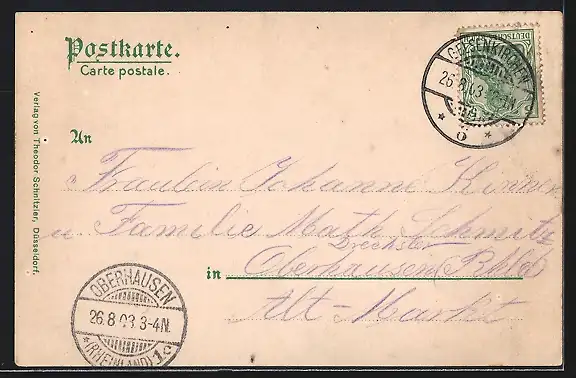 Postkarte.
Carte postale.
DEUTSCHES
GELSENKIRCHEN
26.8.03.
Verlag von Theodor Schnitzler, Düsseldorf.
An
Fräulein Johanne
u. Familie Math. Schmitz
Drechsler
in Oberhausen
Alt-Markt
OBERHAUSEN
26.8.03.3-4N.
*(RHEINLAND)1c